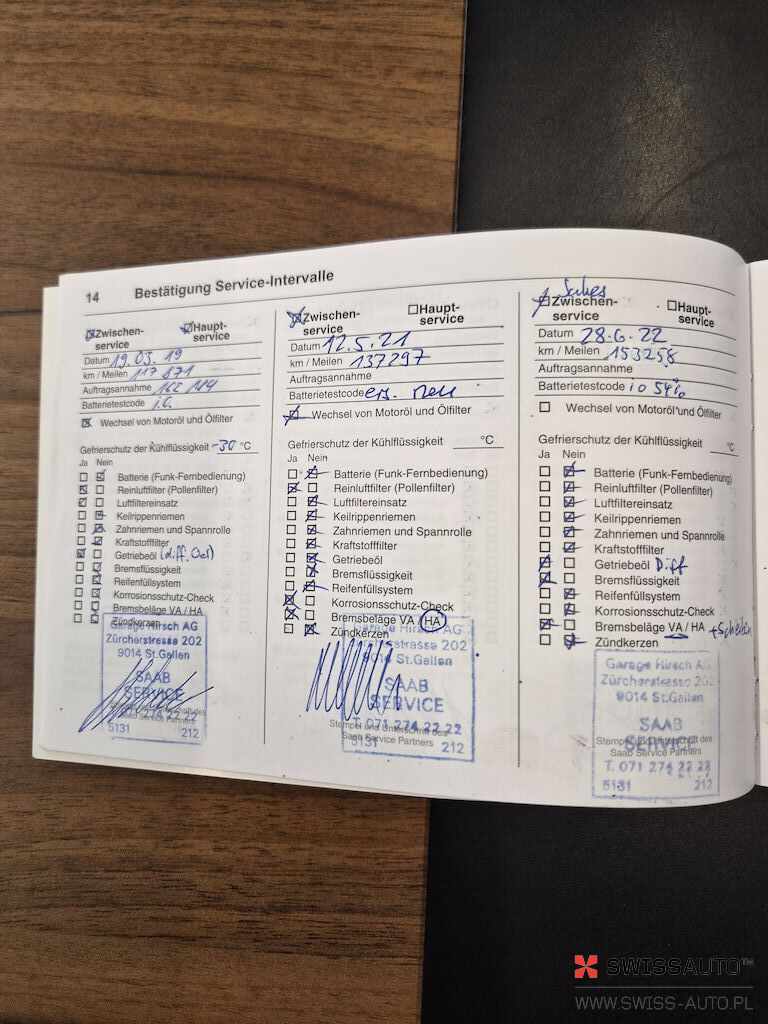 14 Bestätigung Service-Intervalle
Zwischen-service Haupt-service
Datum 19.03.19
km / Meilen 117 871
Auftragsannahme
Batterietestcode i.o.
Wechsel von Motoröl und Ölfilter
Gefrierschutz der Kühlflüssigkeit -30 °C
Ja Nein
Batterie (Funk-Fernbedienung)
Reinluftfilter (Pollenfilter)
Luftfiltereinsatz
Keilrippenriemen
Zahnriemen und Spannrolle
Kraftstofffilter
Getriebeöl (diff. Oel)
Bremsflüssigkeit
Reifenfüllsystem
Korrosionsschutz-Check
Bremsbeläge VA / HA
Zündkerzen
Garage Hirsch AG
Zürcherstrasse 202
9014 St.Gallen
SAAB
SERVICE
Saab Service Partners
5131 212
Zwischen-service Haupt-service
Datum 12.5.21
km / Meilen 137297
Auftragsannahme
Batterietestcode ers. neu
Wechsel von Motoröl und Ölfilter
Gefrierschutz der Kühlflüssigkeit °C
Ja Nein
Batterie (Funk-Fernbedienung)
Reinluftfilter (Pollenfilter)
Luftfiltereinsatz
Keilrippenriemen
Zahnriemen und Spannrolle
Kraftstofffilter
Getriebeöl
Bremsflüssigkeit
Reifenfüllsystem
Korrosionsschutz-Check
Bremsbeläge VA / HA
Zündkerzen
Garage Hirsch AG
9014 St.Gallen
SAAB
SERVICE
Stempel und Unterschrift des
Saab Service Partners
T. 071 274 22 22
5131 212
Zwischen-service Haupt-service
Datum 28.6.22
km / Meilen 153258
Auftragsannahme
Batterietestcode io 54%
Wechsel von Motoröl und Ölfilter
Gefrierschutz der Kühlflüssigkeit °C
Ja Nein
Batterie (Funk-Fernbedienung)
Reinluftfilter (Pollenfilter)
Luftfiltereinsatz
Keilrippenriemen
Zahnriemen und Spannrolle
Kraftstofffilter
Getriebeöl Diff
Bremsflüssigkeit
Reifenfüllsystem
Korrosionsschutz-Check
Bremsbeläge VA / HA
Zündkerzen
Garage Hirsch AG
Zürcherstrasse 202
9014 St.Gallen
SAAB
SERVICE
Saab Service Partners
T. 071 274 22 22
5131 212
SWISSAUTO™
WWW.SWISS-AUTO.PL